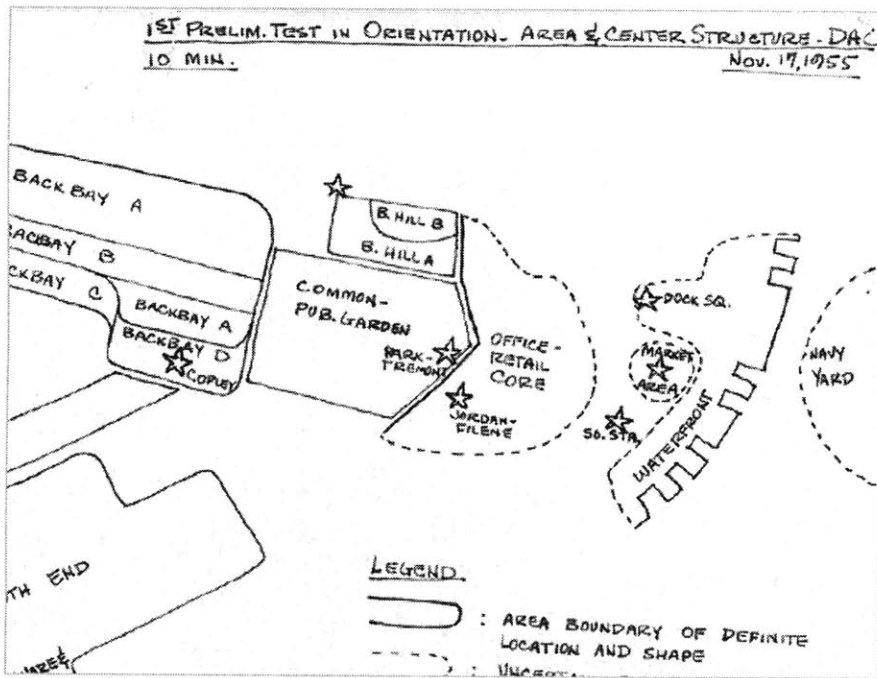 1ST PRELIM. TEST IN ORIENTATION - AREA & CENTER STRUCTURE - DAC
10 MIN.
Nov. 17, 1955
BACK BAY A
BACKBAY B
CKBAY C
BACKBAY A
BACKBAY D
COPLEY
B. HILL B
B. HILL A
COMMON-
PUB. GARDEN
PARK-
TREMONT
JORDAN-
FILENE
OFFICE-
RETAIL
CORE
DOCK SQ.
MARKET
AREA
SO. STA.
WATERFRONT
NAVY
YARD
TH END
LEGEND
: AREA BOUNDARY OF DEFINITE
LOCATION AND SHAPE